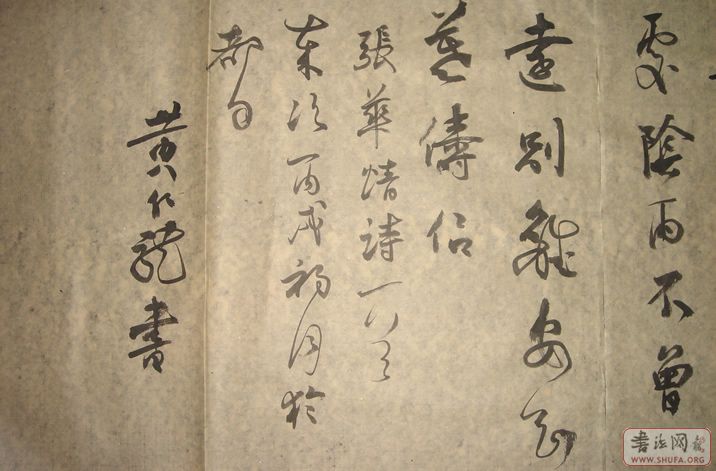 處陰雨不曾
遠別離安知
慕儔侶
張華情詩一首
歲次丙戌初於
都勻
黃仁龍書
書法网
WWW.SHUFA.ORG